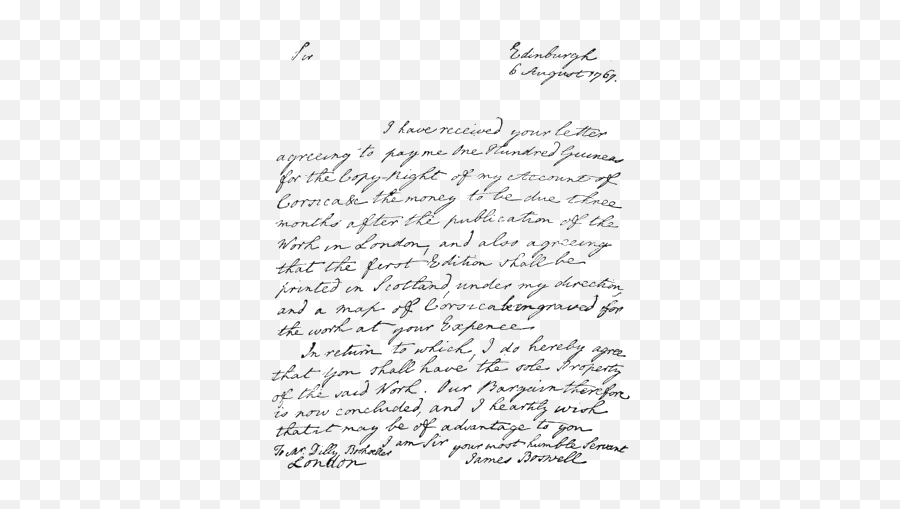 Sir
Edinburgh
6 August 1767.
I have received your letter
agreeing to pay me One Hundred Guineas
for the Copy-Right of my Account of
Corsica &c the money to be due three
months after the publication of the
Work in London, and also agreeing
that the first Edition shall be
printed in Scotland, under my direction,
and a map of Corsica be engraved for
the work at your Expence.
In return to which, I do hereby agree
that you shall have the sole Property
of the said Work. Our Bargain therefore
is now concluded, and I heartily wish
that it may be of advantage to you
I am Sir your most humble Servant
To Mr. Dilly, Bookseller
London
James Boswell